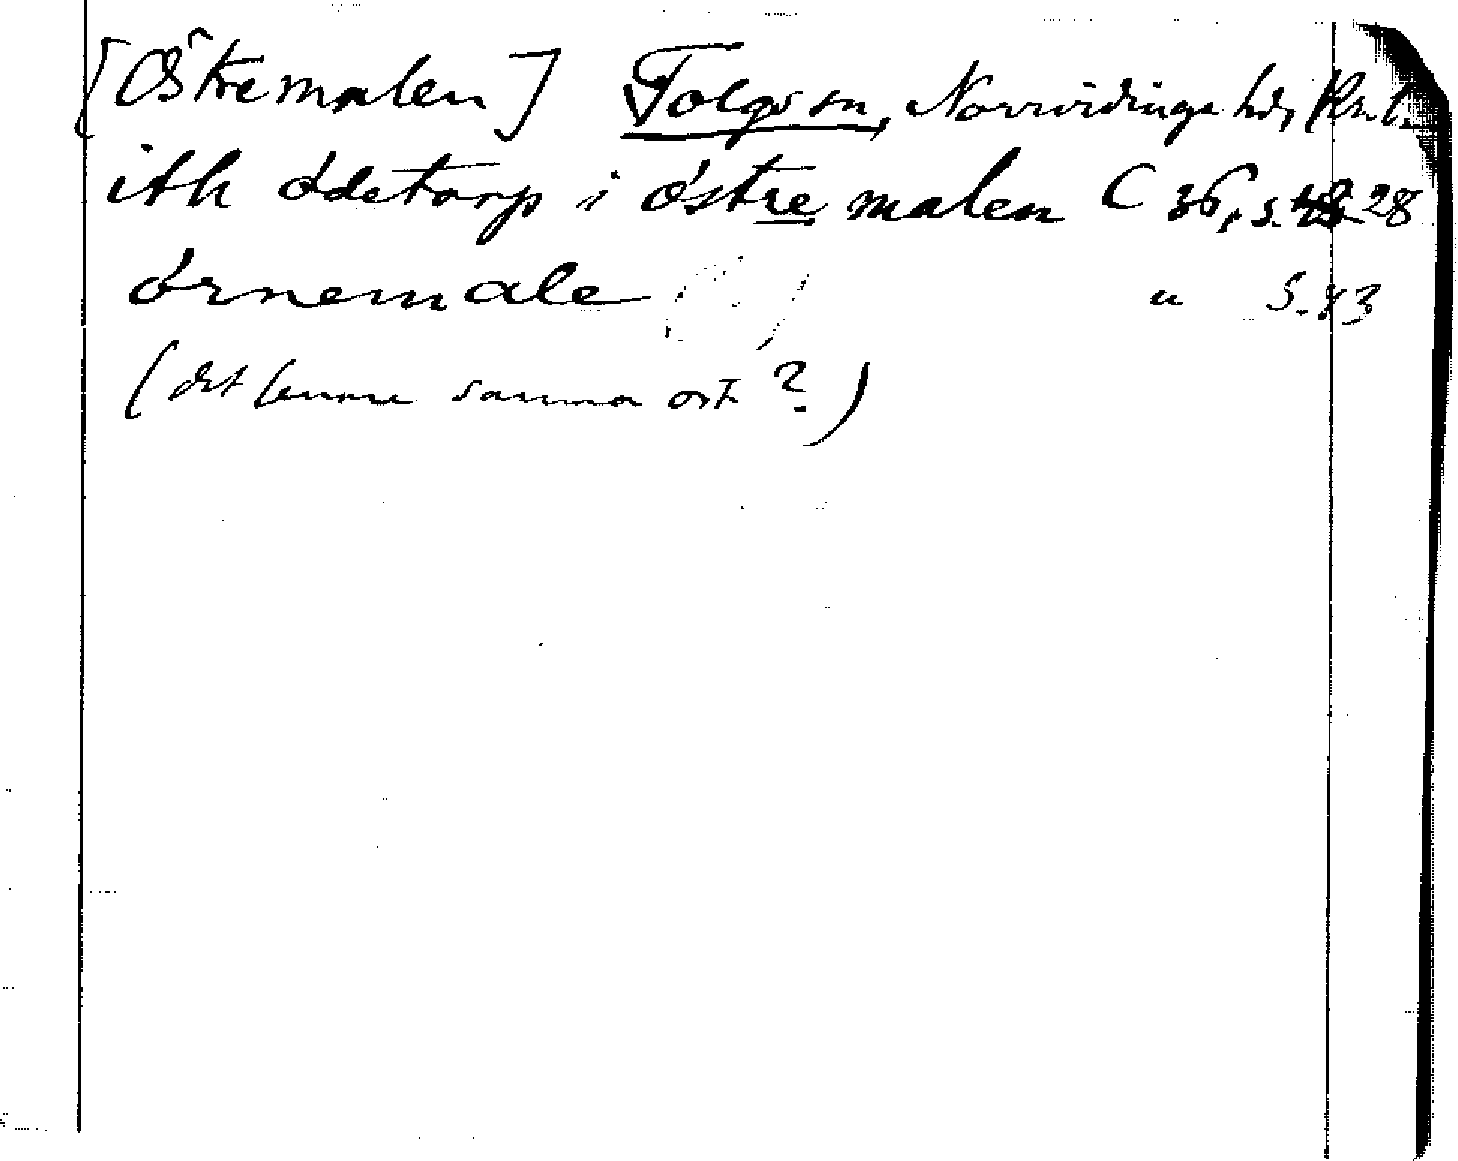 [Östremalen] Tolgs sn, Norrvidinge hd, Kr. l.
itk ödetorp i östre malen C 36, s. 28
örnemale " s. 43
(det senare samma ort?)